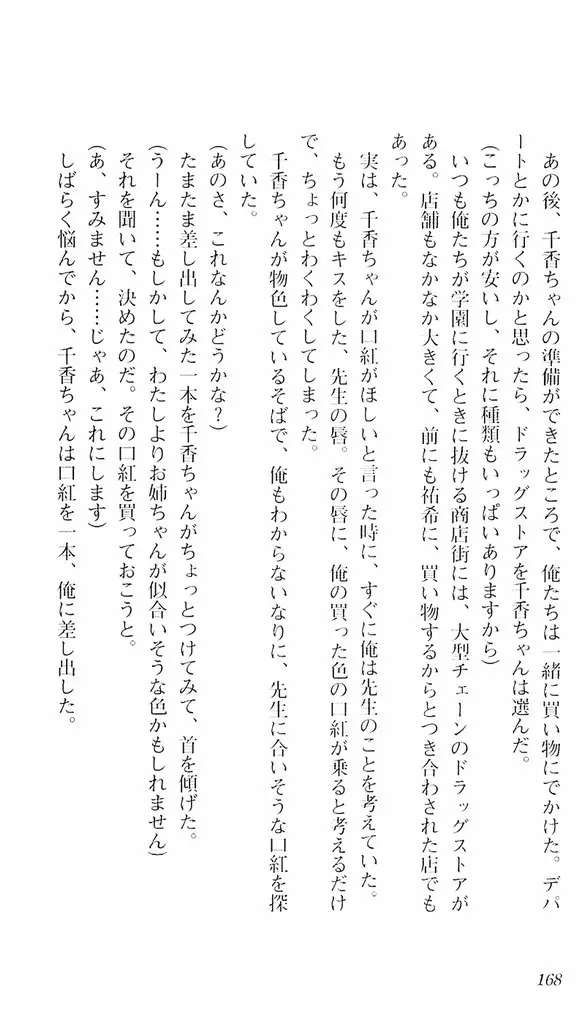 あの後、千香ちゃんの準備ができたところで、俺たちは一緒に買い物にでかけた。デパ
ートとかに行くのかと思ったら、ドラッグストアを千香ちゃんは選んだ。
（こっちの方が安いし、それに種類もいっぱいありますから）
　いつも俺たちが学園に行くときに抜ける商店街には、大型チェーンのドラッグストアが
ある。店舗もなかなか大きくて、前にも祐希に、買い物するからとつき合わされた店でも
あった。
　実は、千香ちゃんが口紅がほしいと言った時に、すぐに俺は先生のことを考えていた。
　もう何度もキスをした、先生の唇。その唇に、俺の買った色の口紅が乗ると考えるだけ
で、ちょっとわくわくしてしまった。
　千香ちゃんが物色しているそばで、俺もわからないなりに、先生に合いそうな口紅を探
していた。
（あのさ、これなんかどうかな？）
　たまたま差し出してみた一本を千香ちゃんがちょっとつけてみて、首を傾げた。
（うーん……もしかして、わたしよりお姉ちゃんが似合いそうな色かもしれません）
　それを聞いて、決めたのだ。その口紅を買っておこうと。
（あ、すみません……じゃあ、これにします）
　しばらく悩んでから、千香ちゃんは口紅を一本、俺に差し出した。
168